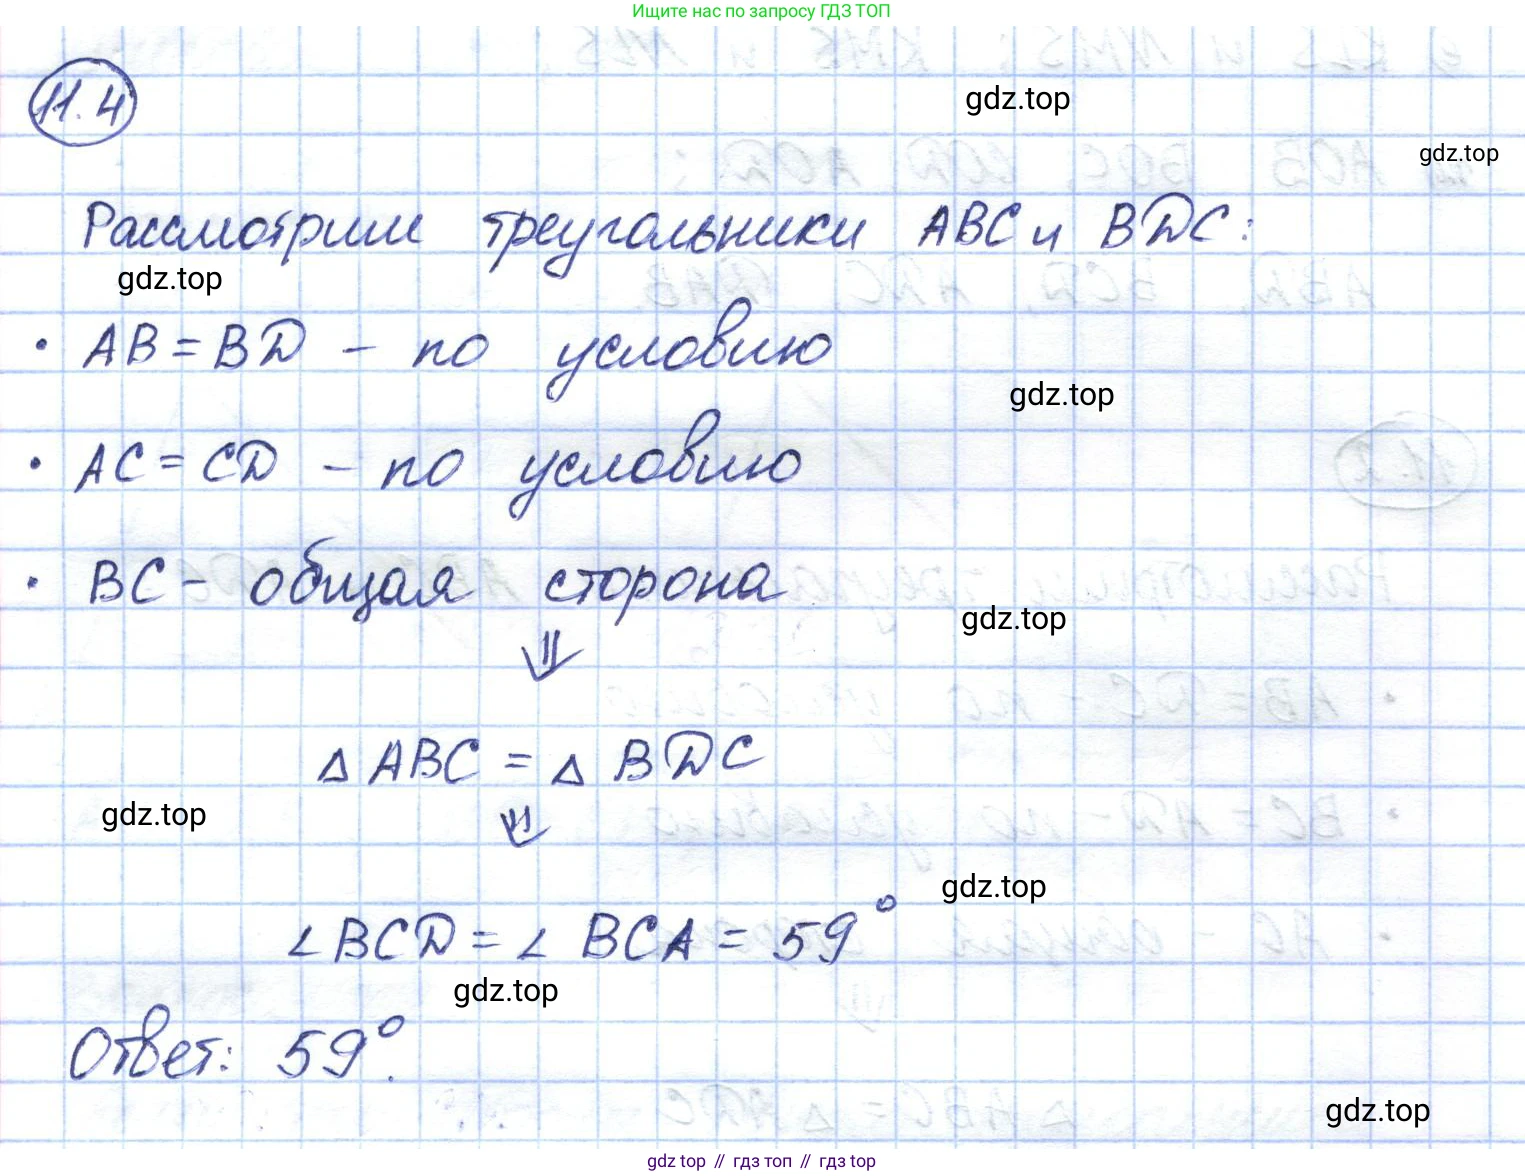 Ищите нас по запросу ГДЗ ТОП
11.4
gdz.top
gdz.top
Рассмотрим треугольники ABC и BDC:
gdz.top
• AB = BD – по условию
gdz.top
• AC = CD – по условию
• BC – общая сторона
gdz.top
⇓
△ ABC = △ BDC
gdz.top
⇓
gdz.top
∠ BCD = ∠ BCA = 59°
gdz.top
Ответ: 59°.
gdz.top
gdz top // гдз топ // гдз top